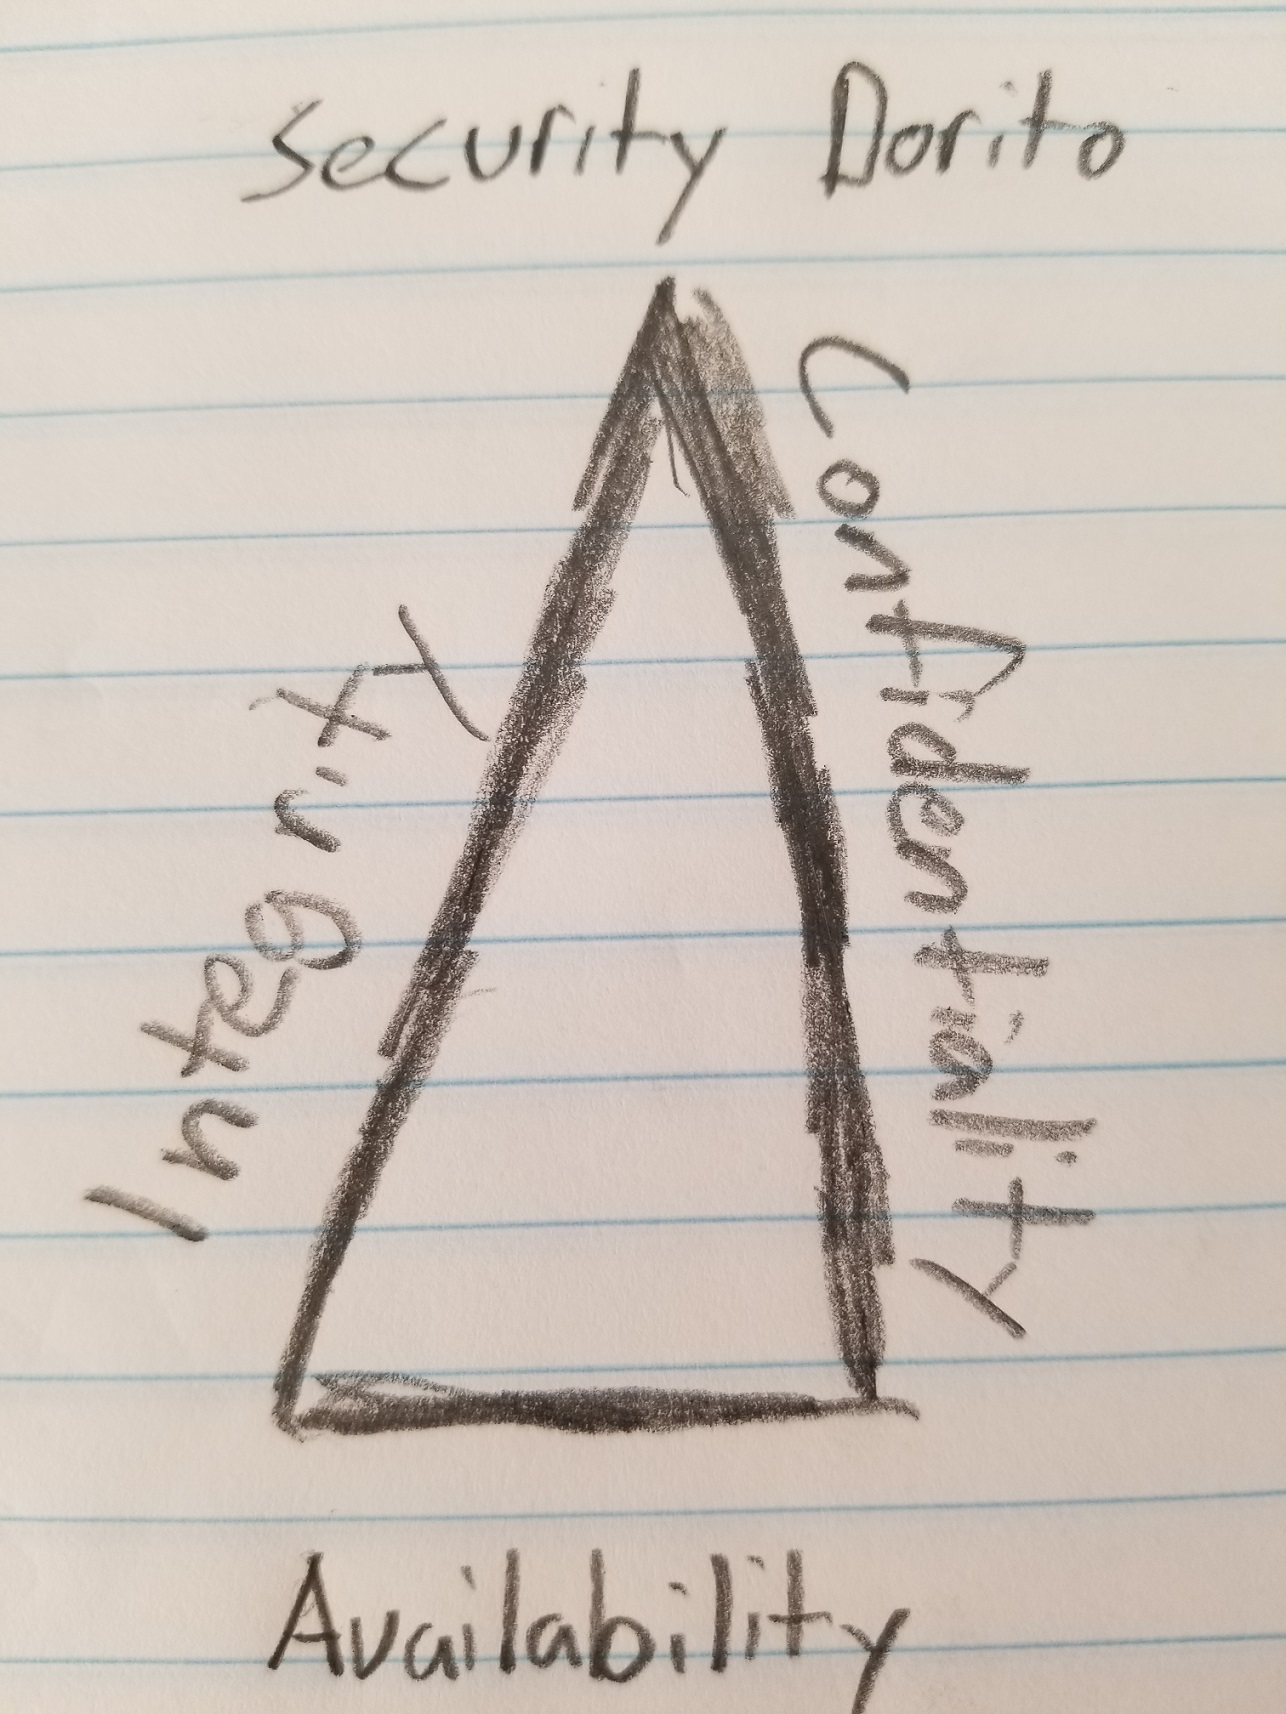 Security Dorito
Integrity
Confidentiality
Availability